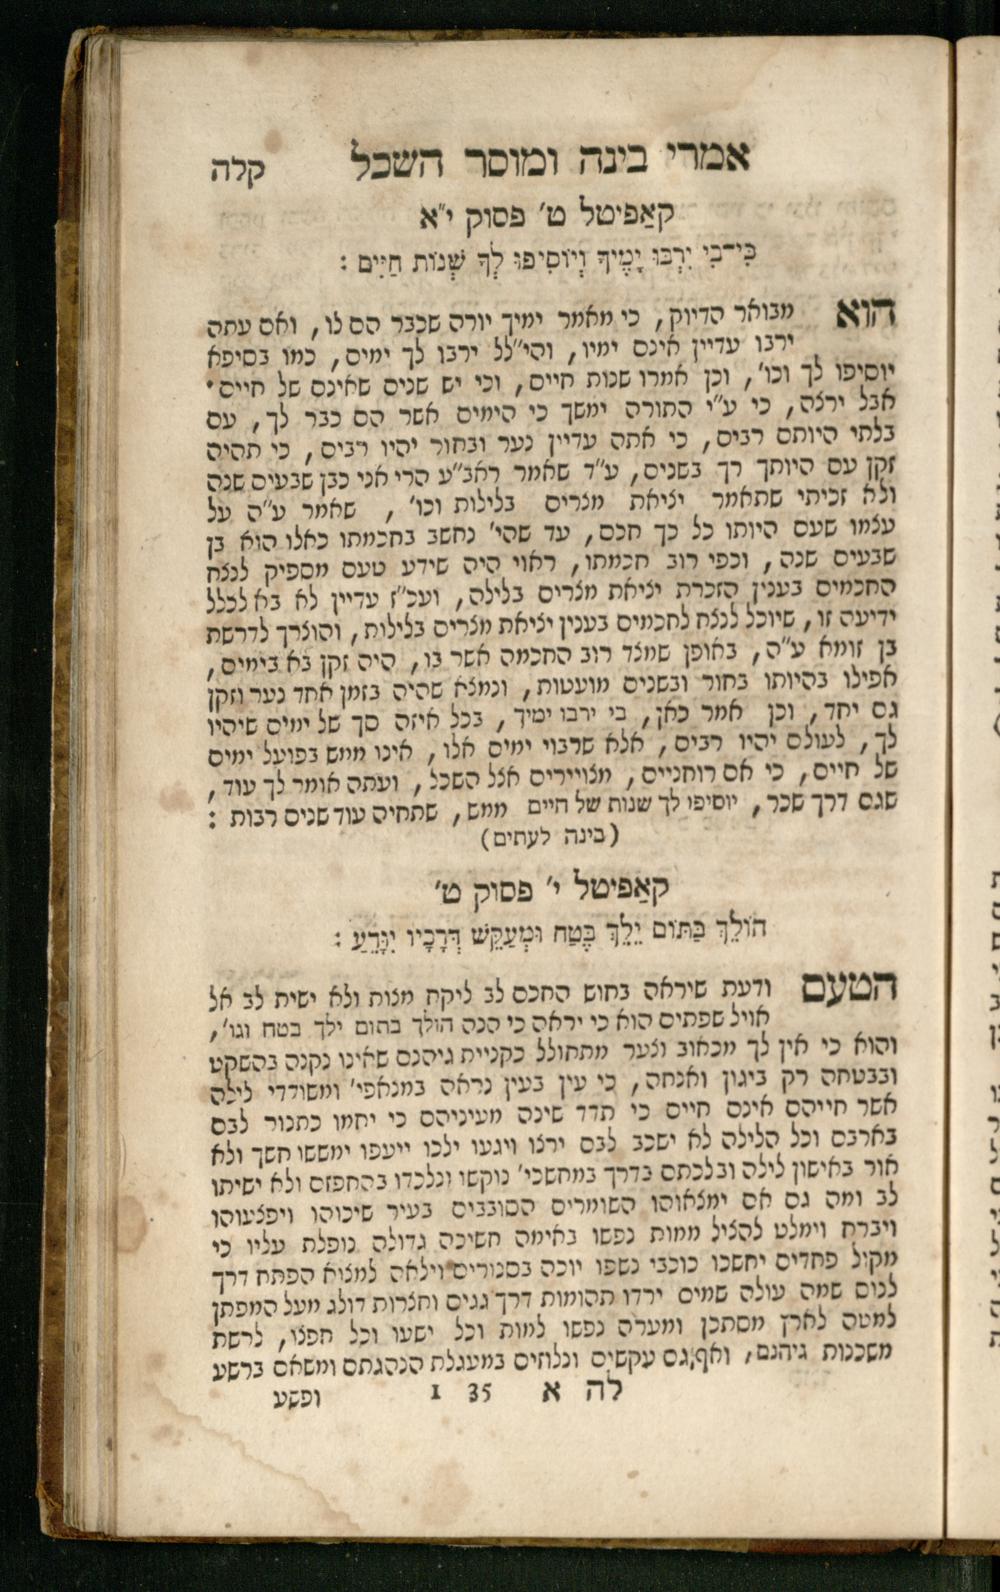 אמרי בינה ומוסר השכל קלה
קאַפיטל ט׳ פסוק י״א
כִּי־בִי יִרְבּוּ יָמֶיךָ וְיוֹסִיפוּ לְךָ שְׁנוֹת חַיִּים :
הוא מבואר הדיוק, כי מאמר ימיך יורה שכבר הם לו, ואם עתה
ירבו עדיין אינם ימיו, והי״לל ירבו לך ימים, כמו בסיפא
יוסיפו לך וכו׳, וכן אמרו שנות חיים, וכי יש שנים שאינם של חיים•
אבל ירצה, כי ע״י התורה ימשך כי הימים אשר הם כבר לך, עם
בלתי היותם רבים, כי אתה עדיין נער ובחור יהיו רבים, כי תהיה
זקן עם היותך רך בשנים, ע״ד שאמר ראב״ע הרי אני כבן שבעים שנה
ולא זכיתי שתאמר יציאת מצרים בלילות וכו׳, שאמר ע״ה על
עצמו שעם היותו כל כך חכם, עד שהי׳ נחשב בחכמתו כאלו הוא בן
שבעים שנה, וכפי רוב חכמתו, ראוי היה שידע טעם מספיק לנצח
החכמים בענין הזכרת יציאת מצרים בלילה, ועכ״ז עדיין לא בא לכלל
ידיעה זו, שיוכל לנצח לחכמים בענין יציאת מצרים בלילות, והוצרך לדרשת
בן זומא ע״ה, באופן שמצד רוב החכמה אשר בו, היה זקן בא בימים,
אפילו בהיותו בחור ובשנים מועטות, ונמצא שהיה בזמן אחד נער וזקן
גם יחד, וכן אמר כאן, בי ירבו ימיך, בכל איזה סך של ימים שיהיו
לך, לעולם יהיו רבים, אלא שרבוי ימים אלו, אינו ממש בפועל ימים
של חיים, כי אם רוחניים, מצויירים אצל השכל, ועתה אומר לך עוד,
שגם דרך שכר, יוסיפו לך שנות של חיים ממש, שתחיה עוד שנים רבות :
(בינה לעתים)
קאַפיטל י׳ פסוק ט׳
הוֹלֵךְ בַּתּוֹם יֵלֶךְ בֶּטַח וּמְעַקֵּשׁ דְּרָכָיו יִוָּדֵעַ :
הטעם ודעת שיראה בחוש החכם לב ליקח מצות ולא ישית לב אל
אויל שפתים הוא כי יראה כי הנה הולך בתום ילך בטח וגו׳,
והוא כי אין לך מכאוב וצער מתחולל כקניית גיהנם שאינו נקנה בהשקט
ובבטחה רק ביגון ואנחה, כי עין בעין נראה במנאפי׳ ומשודדי לילה
אשר חייהם אינם חיים כי תדד שינה מעיניהם כי יחמו כתנור לבם
בארבם וכל הלילה לא ישכב לבם ירצו ויגעו ילכו ייעפו ימששו חשך ולא
אור באישון לילה ובלכתם בדרך במחשכי׳ נוקשו ונלכדו בהחפזם ולא ישיתו
לב ומה גם אם ימצאוהו השומרים הסובבים בעיר שיכוהו ויפצעוהו
ויברח וימלט להציל ממות נפשו באימה חשיכה גדולה נופלת עליו כי
מקול פחדים יחשכו כוכבי נשפו יוכה בסנורים וילאה למצוא הפתח דרך
לנוס שמה עולה שמים ירדו תהומות דרך גנים וחצרות דולג מעל המפתן
למטה לארץ מסתכן ומערה נפשו למות וכל ישעו וכל חפצו, לרשת
משכנות גיהנם, ואף גם עקשים ונלוזים במעגלת הנהגתם ומשאם ברשע
לה א 35 1 ופשע